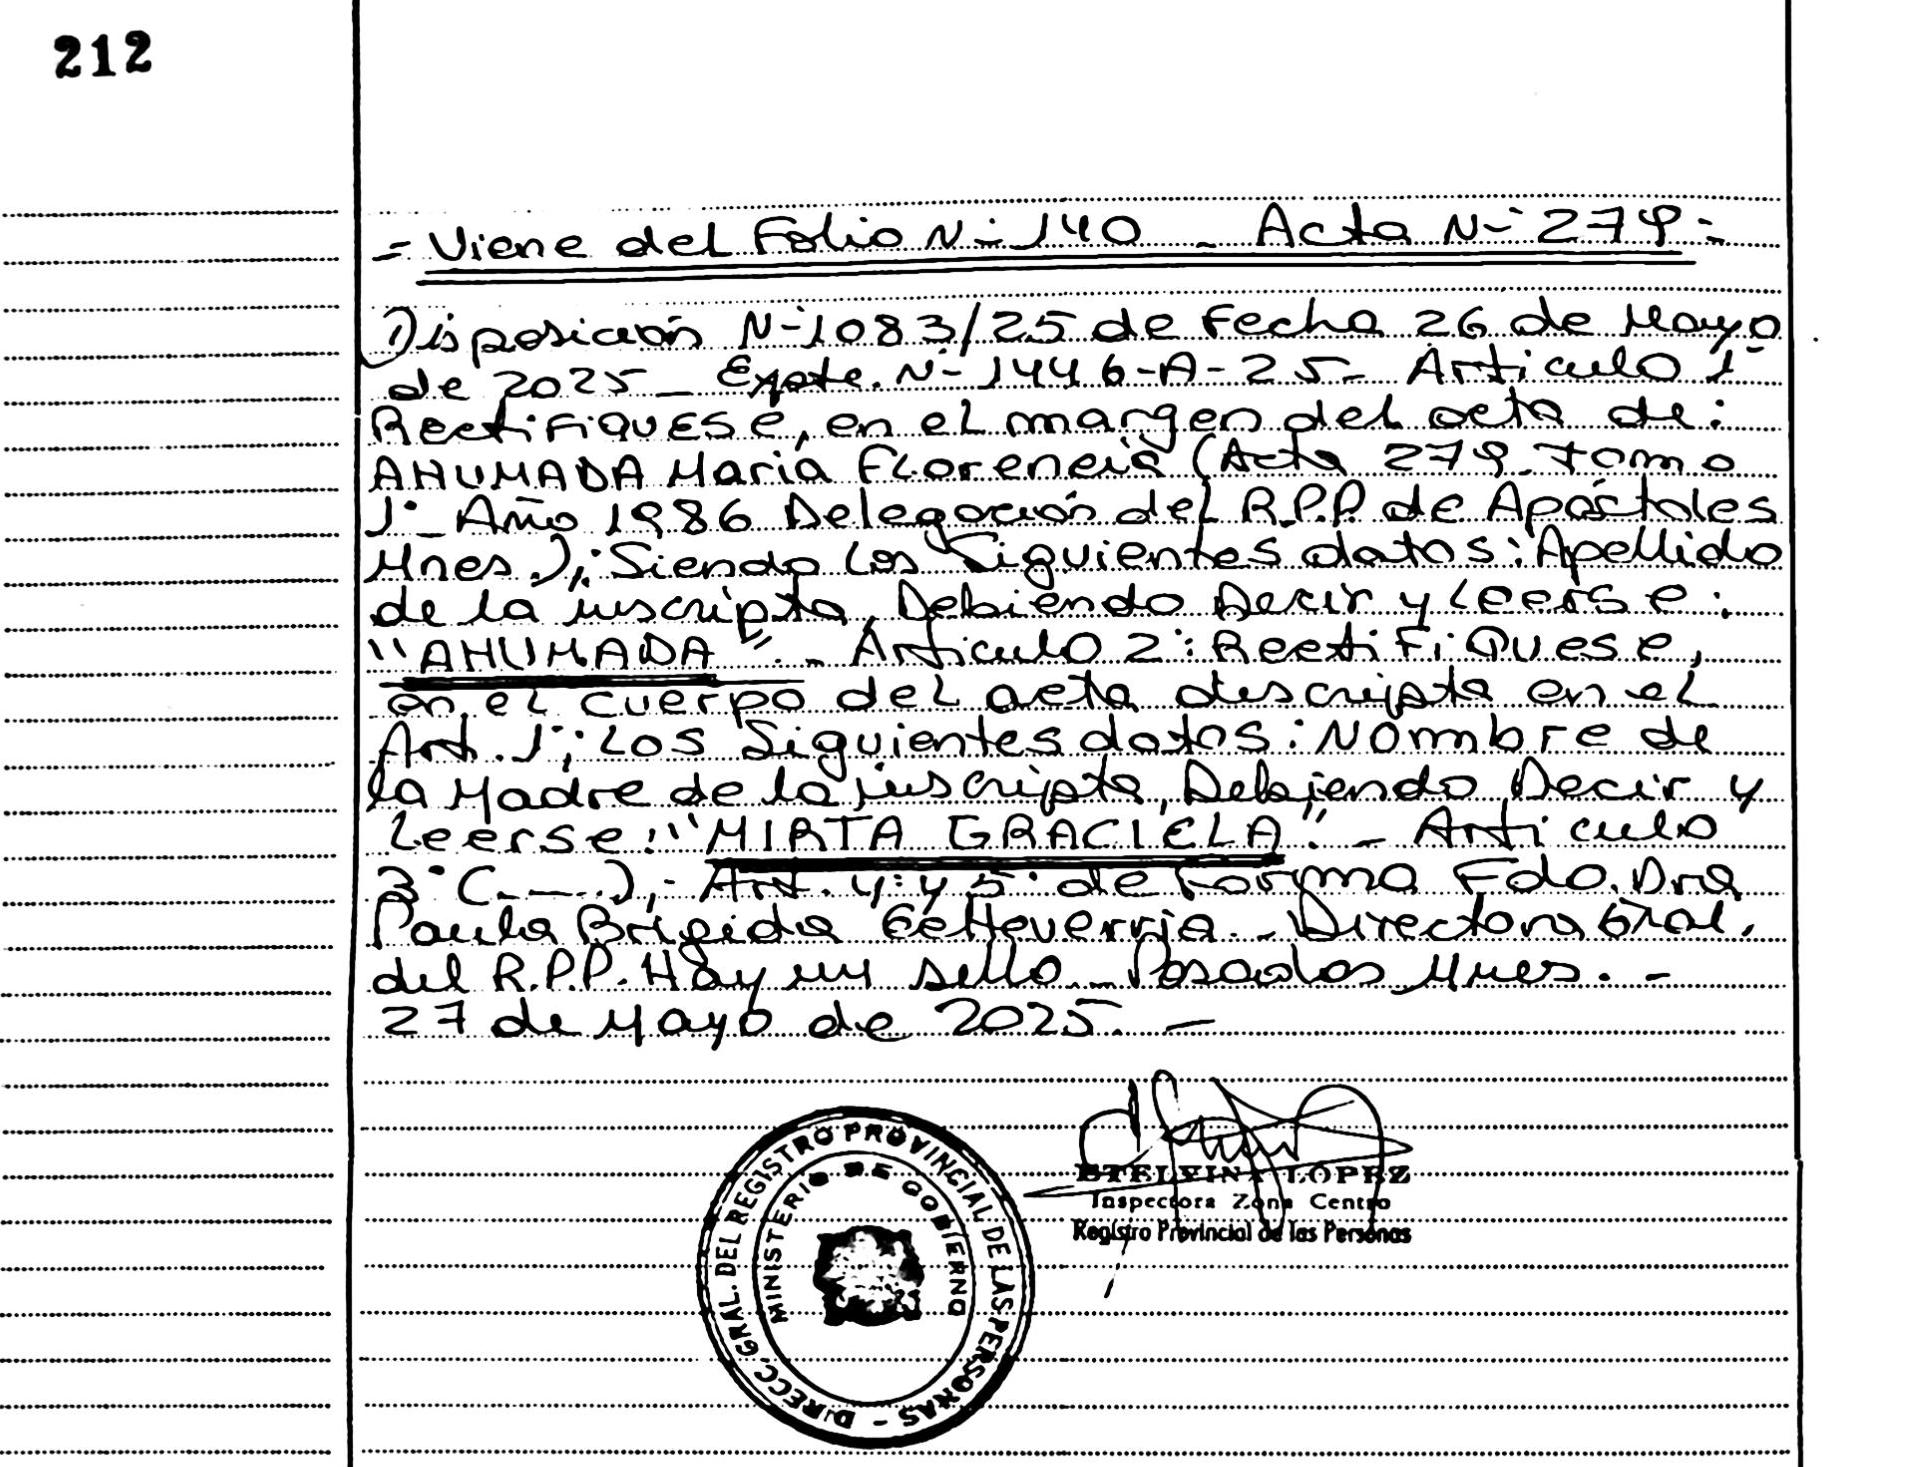 212
= Viene del Folio N- 140 - Acta N- 279 =
Disposición N-1083/25 de Fecha 26 de Mayo
de 2025 - Expte. N- 1446-A-25- Articulo 1-
Rectifiquese, en el margen del acta de:
AHUMADA Maria Florencia (Acta 279. Tomo
1° - Año 1986 Delegación del R.P.P. de Apóstoles
Mnes.); Siendo los Siguientes datos: Apellido
de la inscripta, Debiendo Decir y Leerse:
"AHUMADA". - Articulo 2°: Rectifiquese,
en el cuerpo del acta descripta en el
Art. 1°; Los Siguientes datos: Nombre de
la Madre de la inscripta, Debiendo Decir y
Leerse: "MIRTA GRACIELA". - Articulo
3° (-----),- Art. 4° y 5° de Forma Fdo. Dra
Paula Brigida Echeverria. - Directora Gral.
del R.P.P. Hay un sello - Posadas Mnes. -
27 de Mayo de 2025. -
DIRECC. GRAL. DEL REGISTRO PROVINCIAL DE LAS PERSONAS -
MINISTERIO DE GOBIERNO
ETELVINA LOPEZ
Inspectora Zona Centro
Registro Provincial de las Personas